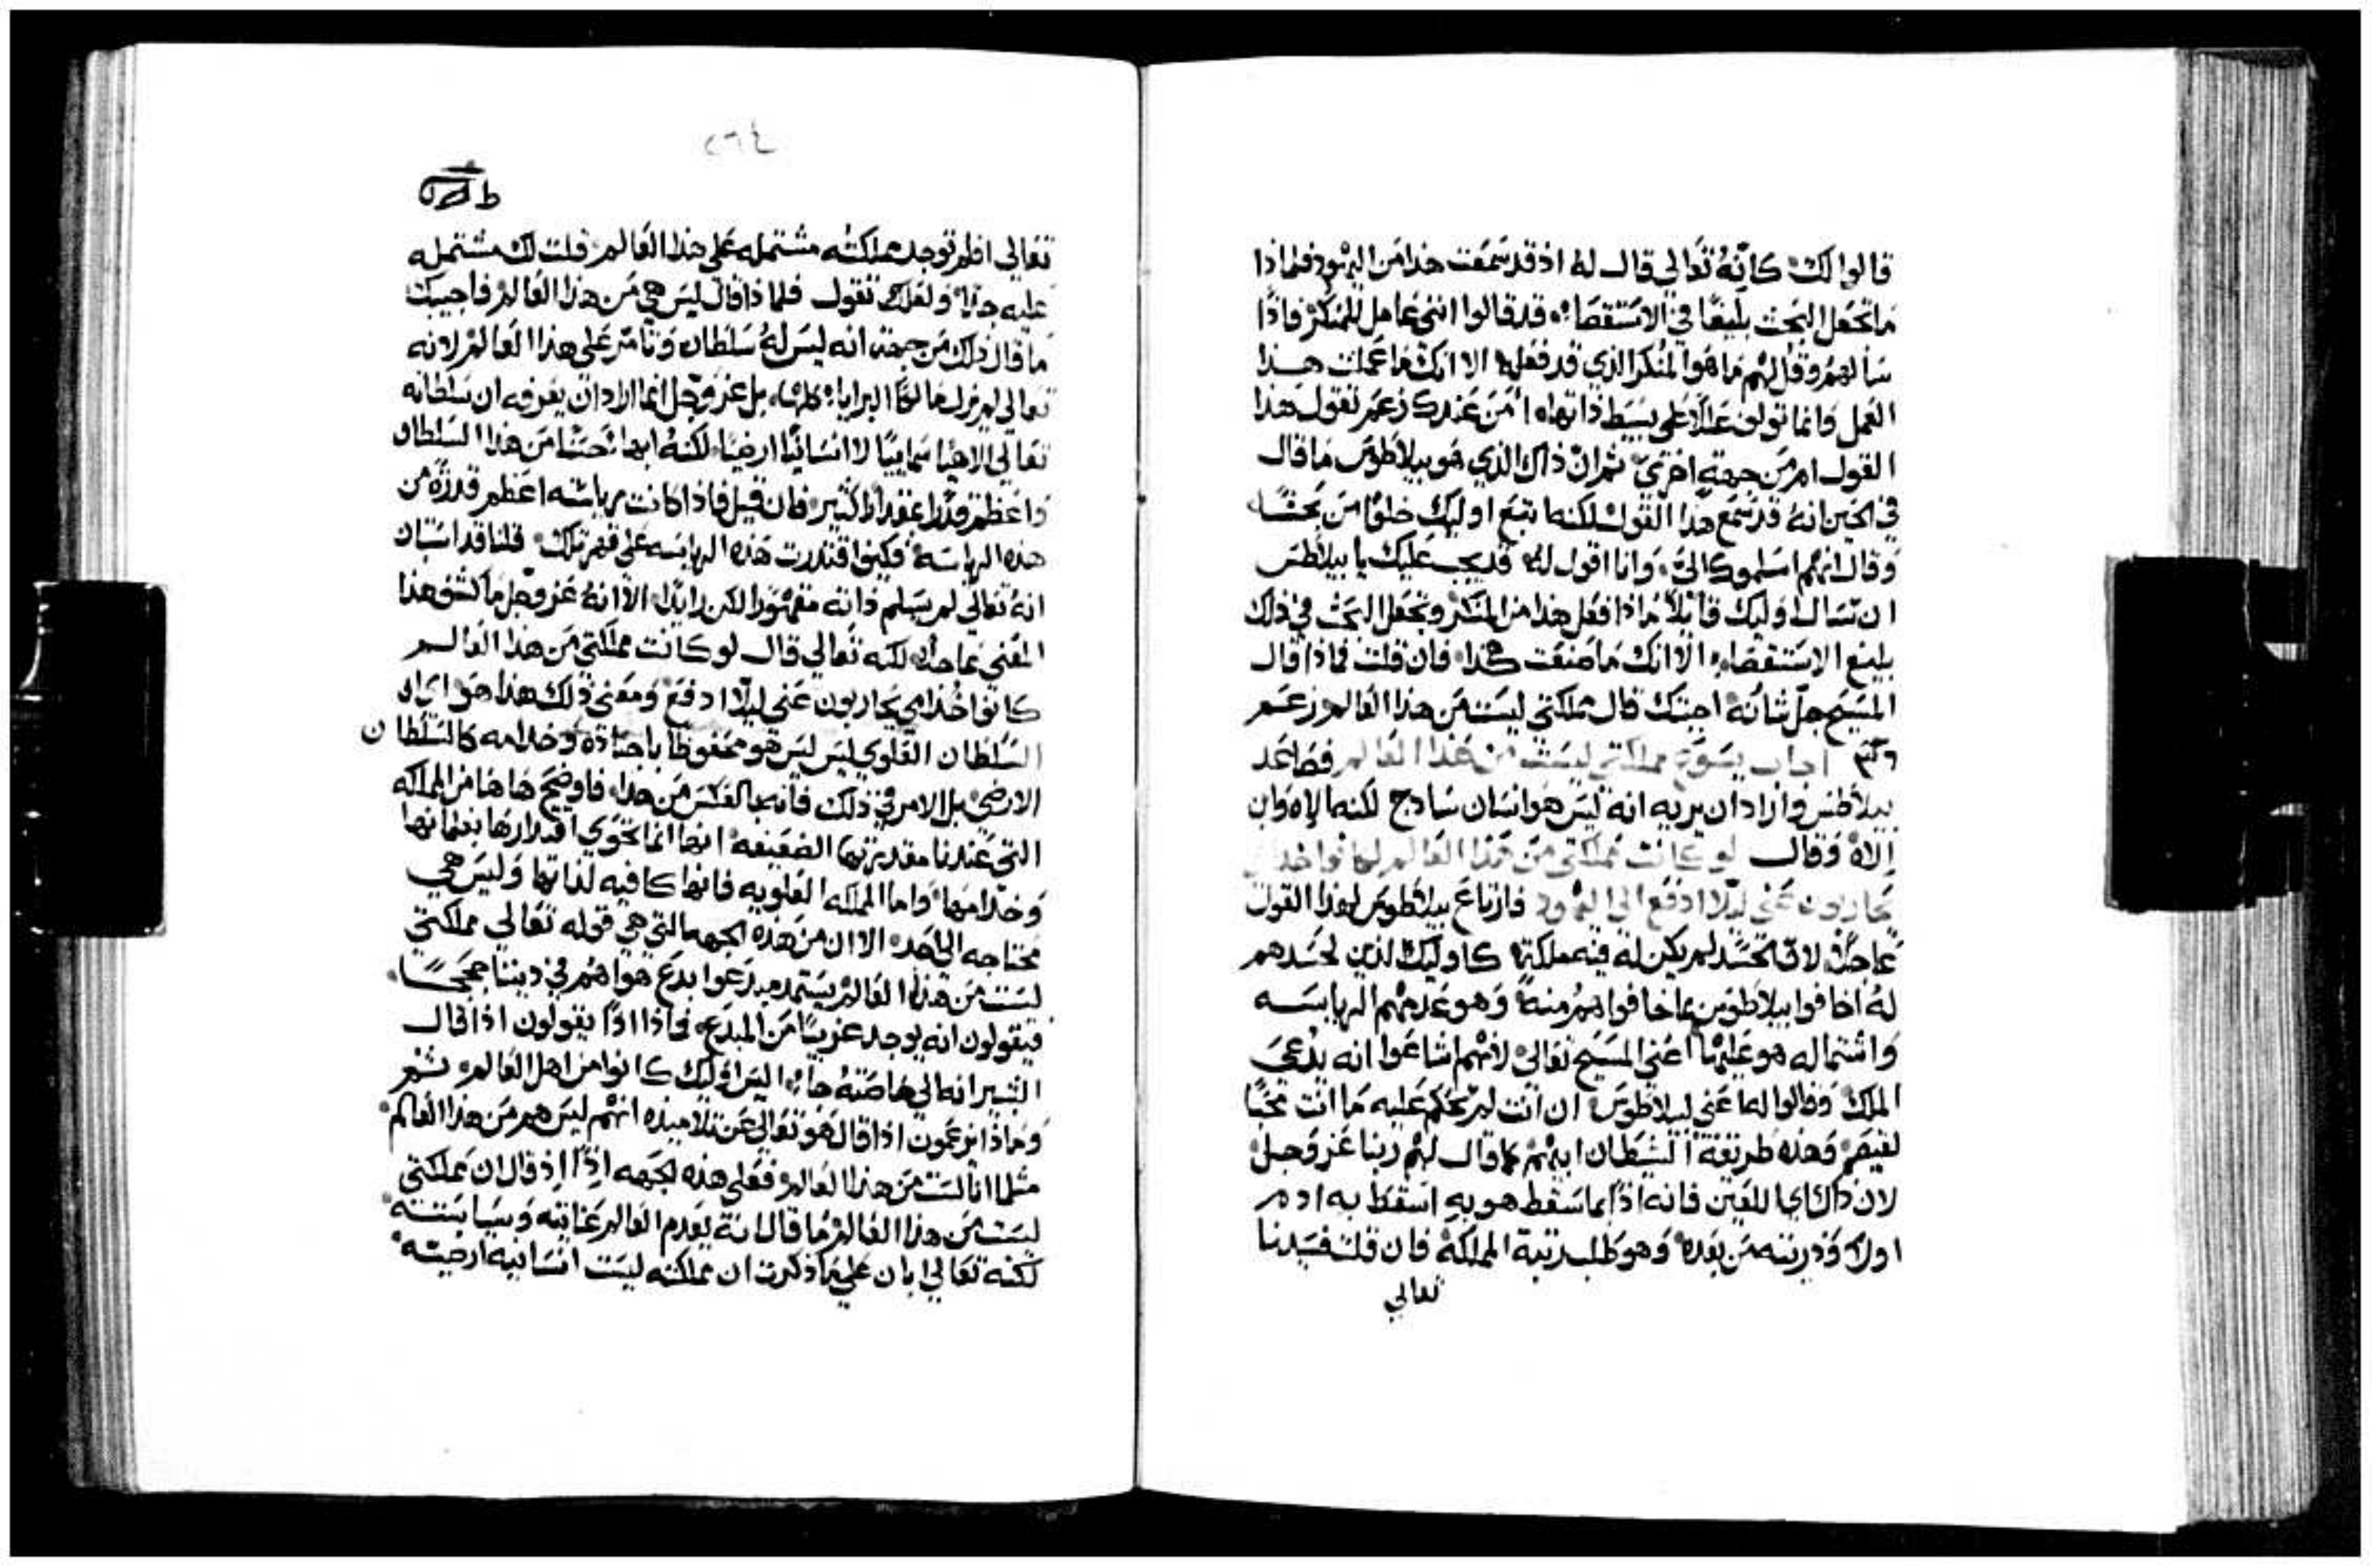 قالوا لك كانه تعالي قال له اذ قد سمعت هذا من اليهود فلماذا
ما تجعل البحث بليغا في الاستقصاء قد قالوا انني عامل للمنكر فاذا
سألهم وقل لهم ما هو المنكر الذي قد فعله الا انك ما عملت هذا
العمل وانما تولف علي بسيط ذاتها امن عندك زعم تقول هذا
القول ام من جهة اخري ثم ان ذاك الذي هو بيلاطوس ما قال
في الحين انه قد سمع هذا القول لكنما تبع اوليك خلوا من بحث
وقال انهم اسلموك الي وانا اقول له قد يجب عليك يا بيلاطس
ان تسال اوليك قايلا ماذا فعل هذا من المنكر وتجعل البحث في ذلك
بليغ الاستقصاء الا انك ما صنعت هكذا فان قلت فماذا قال
المسيح جل شانه اجبتك قال مملكتي ليست من هذا العالم زعم
اجاب يسوع مملكتي ليست من هذا العالم فصاعد
بيلاطس واراد ان يريه انه ليس هو انسان سادج لكنما إلاه وابن
إلاه وقال لو كانت مملكتي من هذا العالم لكانوا خدامي
يحاربون عني ليلا ادفع الي اليهود فارتاع بيلاطوس لهذا القول
عاجلا لانه لم يكن له فيه مملكة كاوليك الذين لحسدهم
له اخافوا بيلاطوس بما خافوا هم منه وهو عدمهم الرياسه
واشتماله هو عليها اعني المسيح تعالي لانهم اشاعوا انه يدعي
الملك وقالوا له اعني لبيلاطوس ان انت لم تحكم عليه ما انت محبا
لقيصر وهذه طريقة الشيطان ابيهم كما قال لهم ربنا عز وجل
لان ذاك اللعين فانه اذا بما سقط هو به اسقط به ادم
اولا وذريته من بعده وهو طلب رتبة المملكة فان قلت فسيدنا
تعالي
٢٦٤
تعالي افلم توجد مملكته مشتمله علي هذا العالم قلت لك مشتمله
عليه جدا ولعلك تقول فلماذا قال ليس هي من هذا العالم فاجيبك
ما قال ذلك من جهة انه ليس له سلطان وتامر علي هذا العالم لانه
تعالي لم يزل مالكا البرايا كلها بل عز وجل انما اراد ان يعرفه ان سلطانه
تعالي الاهيا سماييا لا انسانيا ارضيا لكنه ابها حسنا من هذا السلطان
واعظم قدرا بمقدار كثير فان قيل فاذا كانت رياسته اعظم قدرة من
هذه الرياسه فكيف اقتدرت هذه الرياسه علي قهر تلك قلنا قد استبان
انه تعالي لم يسلم ذاته مقهورا لكن رايدا الا انه عز وجل ما كشف هذا
المعني عاجلا لكنه تعالي قال لو كانت مملكتي من هذا العالم
كانوا خدامي يحاربون عني ليلا ادفع ومعني ذلك هذا هو اي ان
السلطان العلوي ليس هو محفوظا باجناده وخدامه كالسلطان
الارضي بل الامر في ذلك فانما بالعكس من هذا فاوضح هاهنا من المملكه
التي عندنا مقدرتها الضعيفه انها انما تحوي اقتدارها بغلمانها
وخدامها واما المملكه العلويه فانها كافيه لذاتها وليس هي
محتاجه الي احد الا ان من هذه الجهه التي هي قوله تعالي مملكتي
ليست من هذا العالم يستمد مبدعوا بدع هواهم في ديننا حججا
فيقولون انه يوجد غريبا من المبدع فماذا اذا يقولون اذا قال
البشير انه الي خاصته جاء اليس اوليك كانوا من اهل العالم ثم
وماذا يزعمون اذا قال هو تعالي عن تلاميذه انهم ليس هم من هذا العالم
مثلما انا لست من هذا العالم فعلي هذه الجهه اذا اذ قال ان مملكتي
ليست من هذا العالم ما قال انه يعدم العالم عنايته وسياسته
لكنه تعالي ابان علي ما ذكرت ان مملكته ليست انسانيه ارضيه